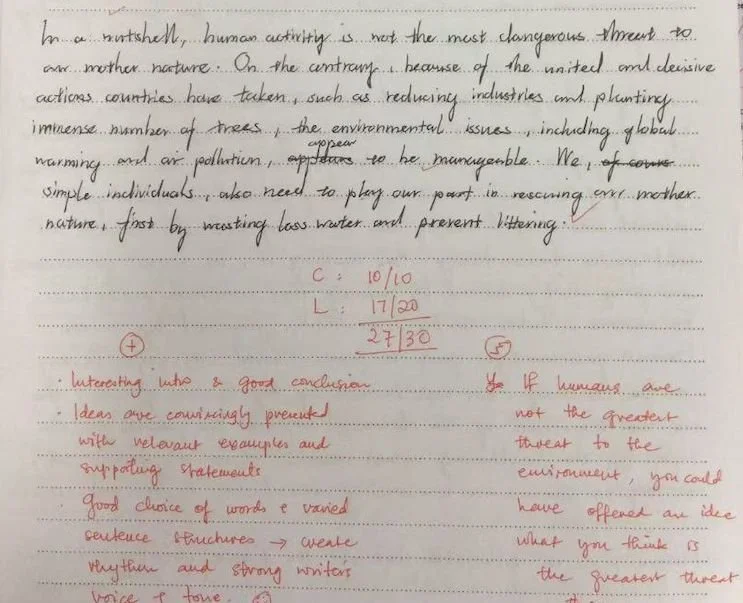 In a nutshell, human activity is not the most dangerous threat to
our mother nature. On the contrary, because of the united and decisive
actions countries have taken, such as reducing industries and planting
immense number of trees, the environmental issues, including global
warming and air pollution, appears appear to be manageable. We, of course
simple individuals, also need to play our part in rescuing our mother
nature, first by wasting less water and prevent littering.
C : 10/10
L : 17/20
27/30
+
· Interesting intro & good conclusion
· Ideas are convincingly presented
with relevant examples and
supporting statements
· Good choice of words & varied
sentence structures → create
rhythm and strong writer's
voice & tone.
If humans are
not the greatest
threat to the
environment, you could
have offered an idea
what you think is
the greatest threat